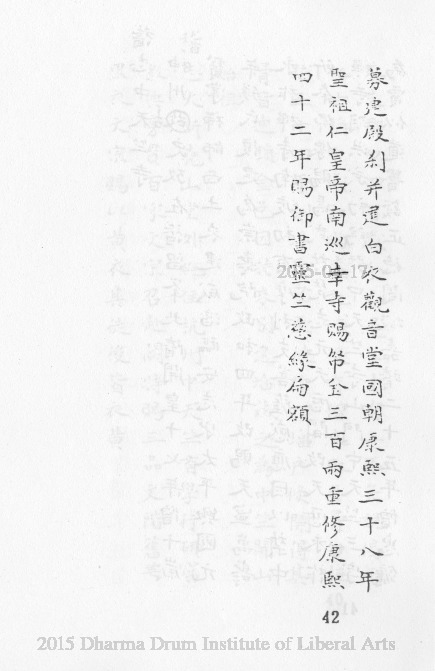 募建殿刹并建白衣觀音堂國朝康熙三十八年
聖祖仁皇帝南巡幸寺賜帑金三百兩重修康熙
四十二年賜御書靈竺慈緣扁額
42
2015-04-17
2015 Dharma Drum Institute of Liberal Arts